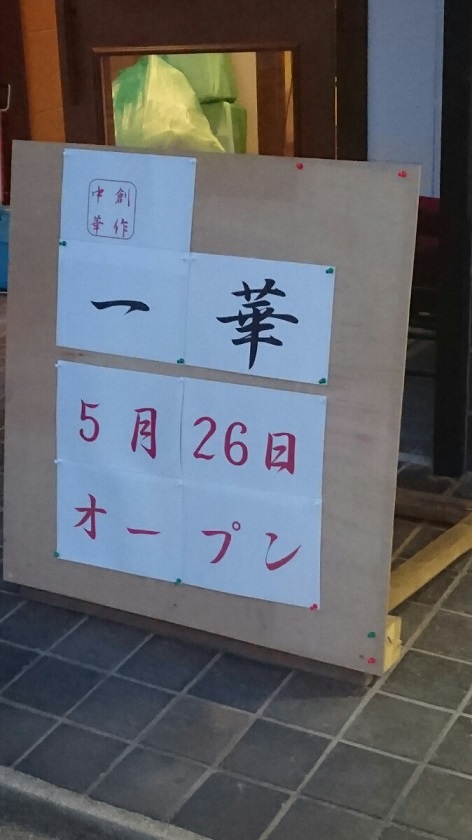 創作
中華
一華
5月26日
オープン